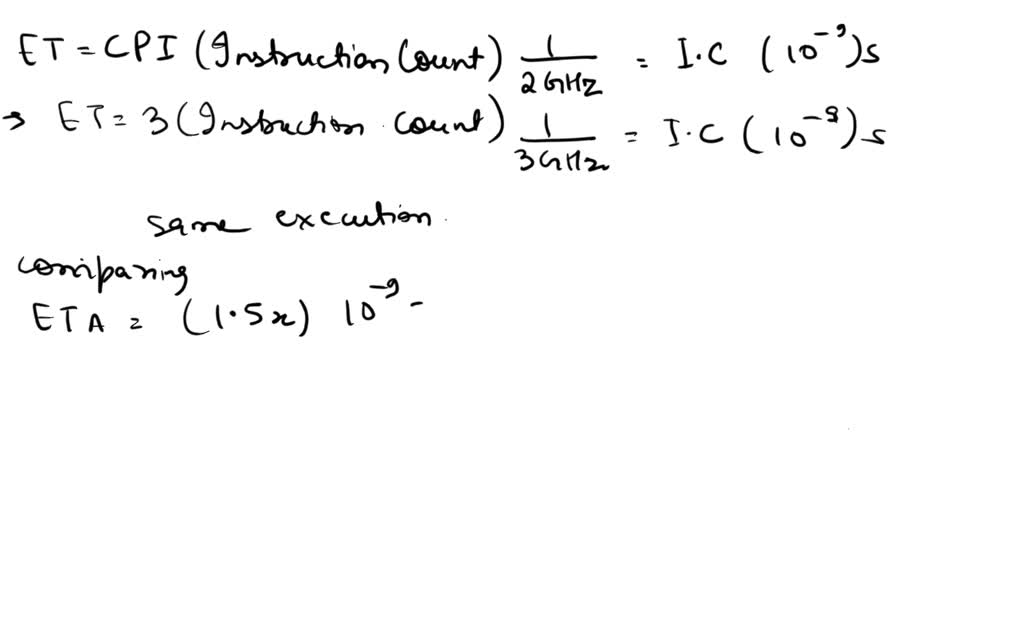 ET = CPI (Instruction Count) 1/2GHz = I.C (10⁻⁹)s
→ ET = 3 (Instruction count) 1/3GHz = I.C (10⁻⁹)s
same execution.
comparing
ETA = (1.5x) 10⁻⁹ -